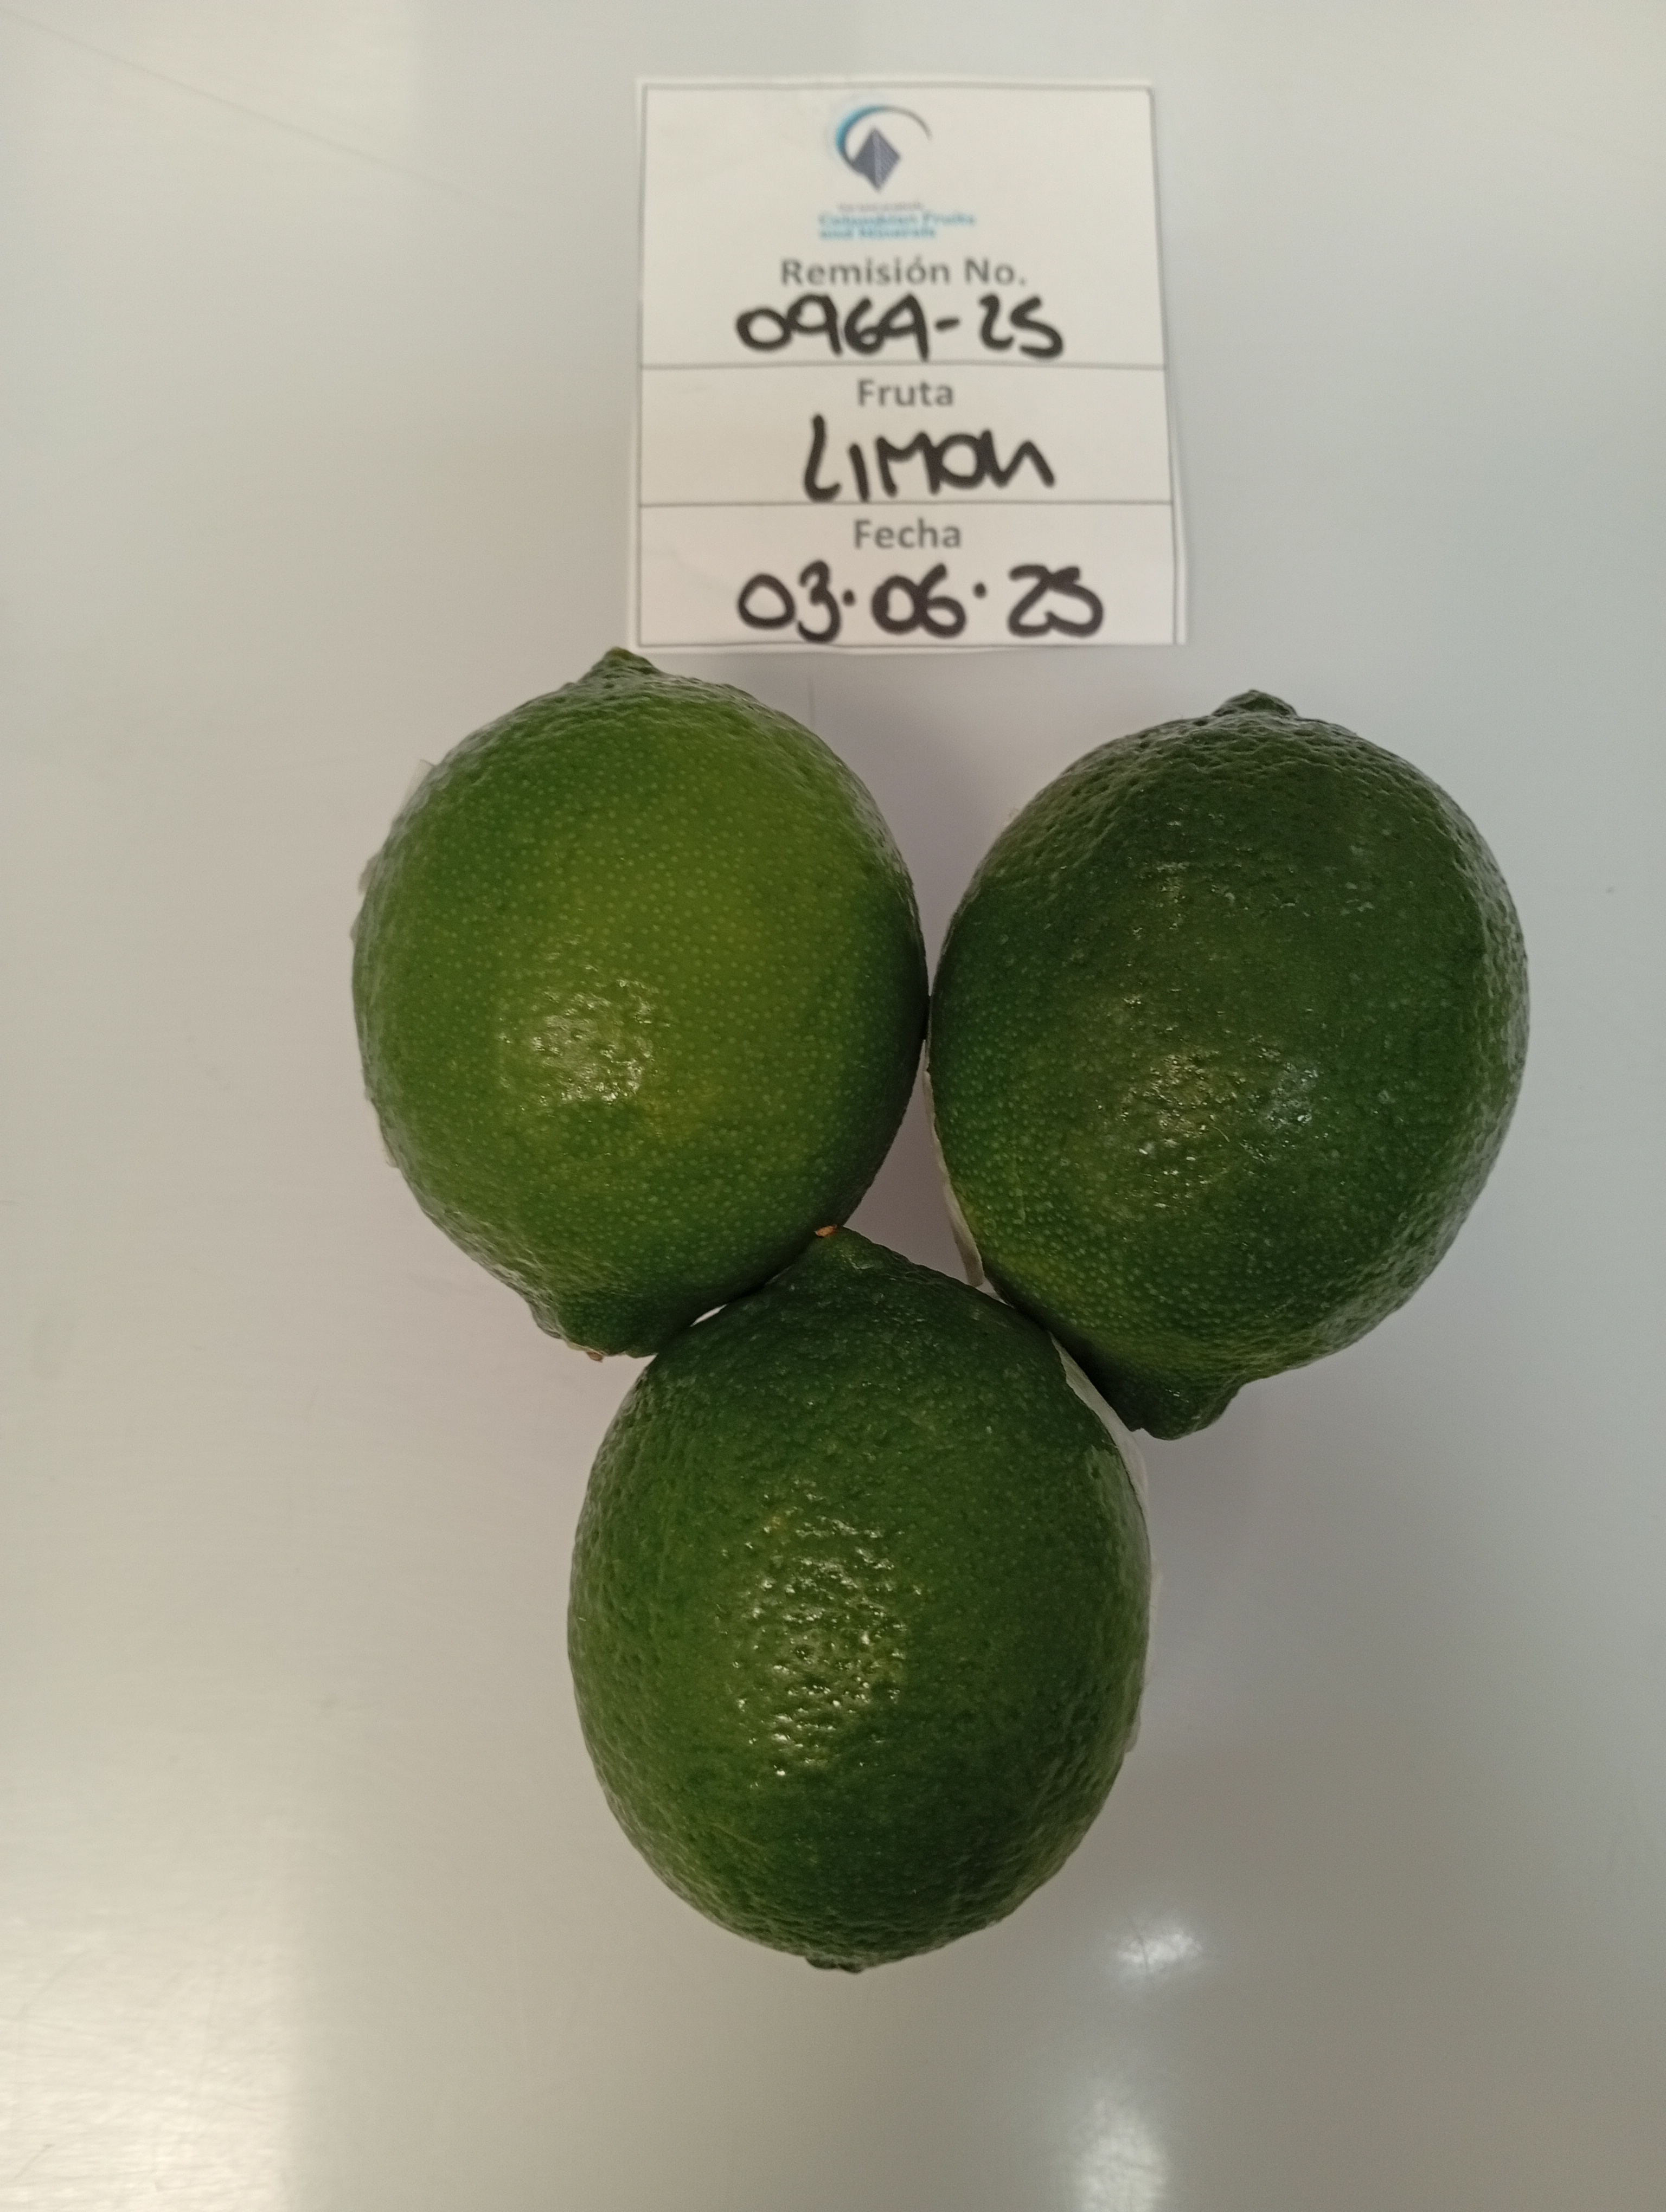 Colombian Fruits
and Minerals
Remisión No.
0969-25
Fruta
LIMON
Fecha
03·06·25